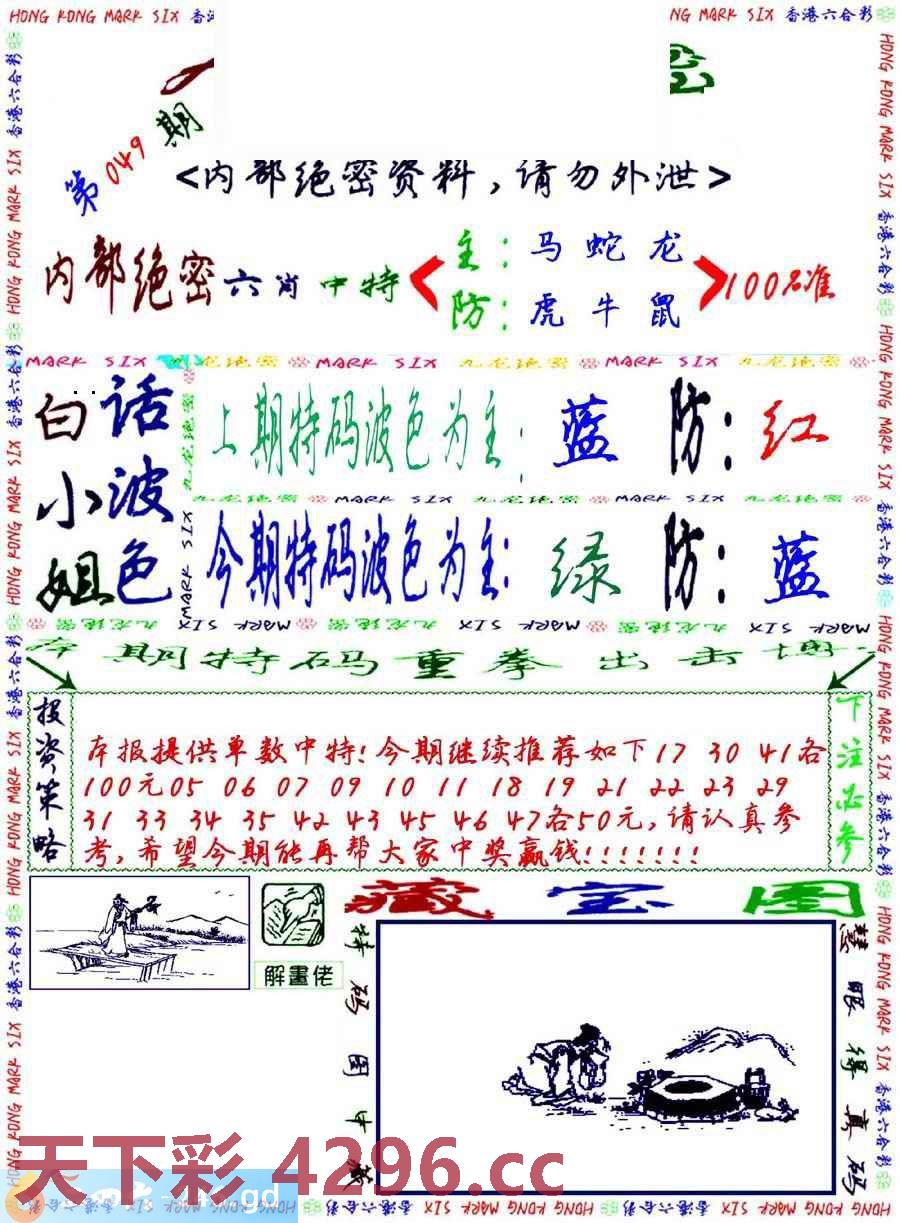 HONG KONG MARK SIX 香港
NG MARK SIX 香港六合彩
第049期
<内部绝密资料,请勿外泄>
内部绝密六肖中特
主:马蛇龙
防:虎牛鼠
100%准
MARK SIX 九龙绝密 MARK SIX 九龙绝密 MARK SIX 九龙绝密
白小姐
话波色
上期特码波色为主:蓝 防:红
九龙绝密 MARK SIX 九龙绝密 MARK SIX 九龙绝密
今期特码波色为主:绿 防:蓝
MARK SIX 九龙绝密 MARK SIX 九龙绝密 MARK SIX 九龙绝密
本期特码重拳出击
投资策略
本报提供单数中特!今期继续推荐如下17 30 41各
100元05 06 07 09 10 11 18 19 21 22 23 29
31 33 34 35 42 43 45 46 47各50元,请认真参
考,希望今期能再帮大家中奖赢钱!!!!!!!
下注必参
解畫佬
藏宝图
特码图中藏
慧眼得真码
天下彩 4296.cc
gd
HONG KONG MARK SIX 香港六合彩